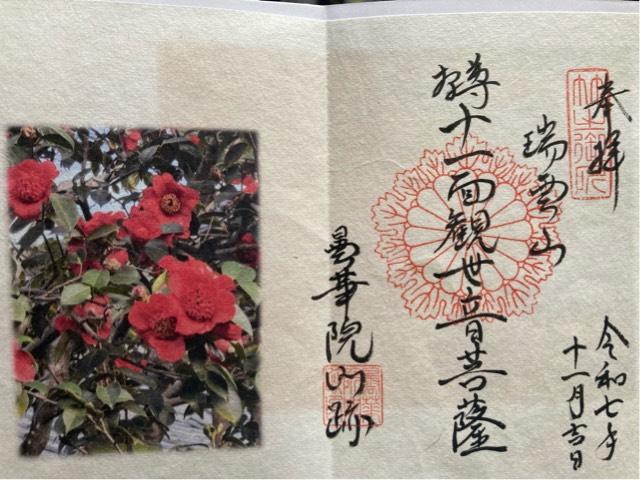 奉拝
竹之御所
瑞雲山
本尊十一面観世音菩薩
曇華院門跡
令和七年
十一月吉日